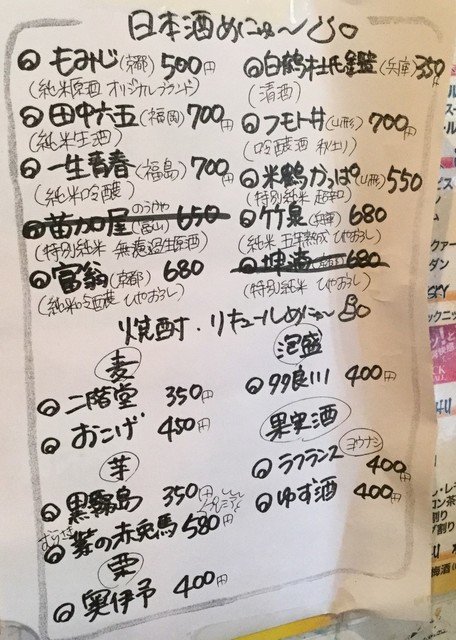 日本酒めにゅ〜
もみじ(京都) 500円
(純米原酒 オリジナルブランド)
田中六五(福岡) 700円
(純米生酒)
一生青春(福島) 700円
(純米吟醸)
苗加屋(富山) 650
のうかや
(特別純米 無濾過生原酒)
富翁(京都) 680
(純米吟醸 ひやおろし)
白鶴杜氏鑑(兵庫) 350
(清酒)
フモト井(山形) 700円
(吟醸酒 秋出し)
米鶴かっぱ(山形) 550
(特別純米 超辛)
竹泉(兵庫) 680
(純米 五年熟成 ひやおろし)
680
(特別純米 ひやおろし)
焼酎・リキュールめにゅ〜
麦
二階堂 350円
おこげ 450円
芋
黒霧島 350円
むらさき
紫の赤兎馬 580円
栗
奥伊予 400円
泡盛
多良川 400円
果実酒
ラフランス ヨウナシ 400円
ゆず酒 400円
SKY